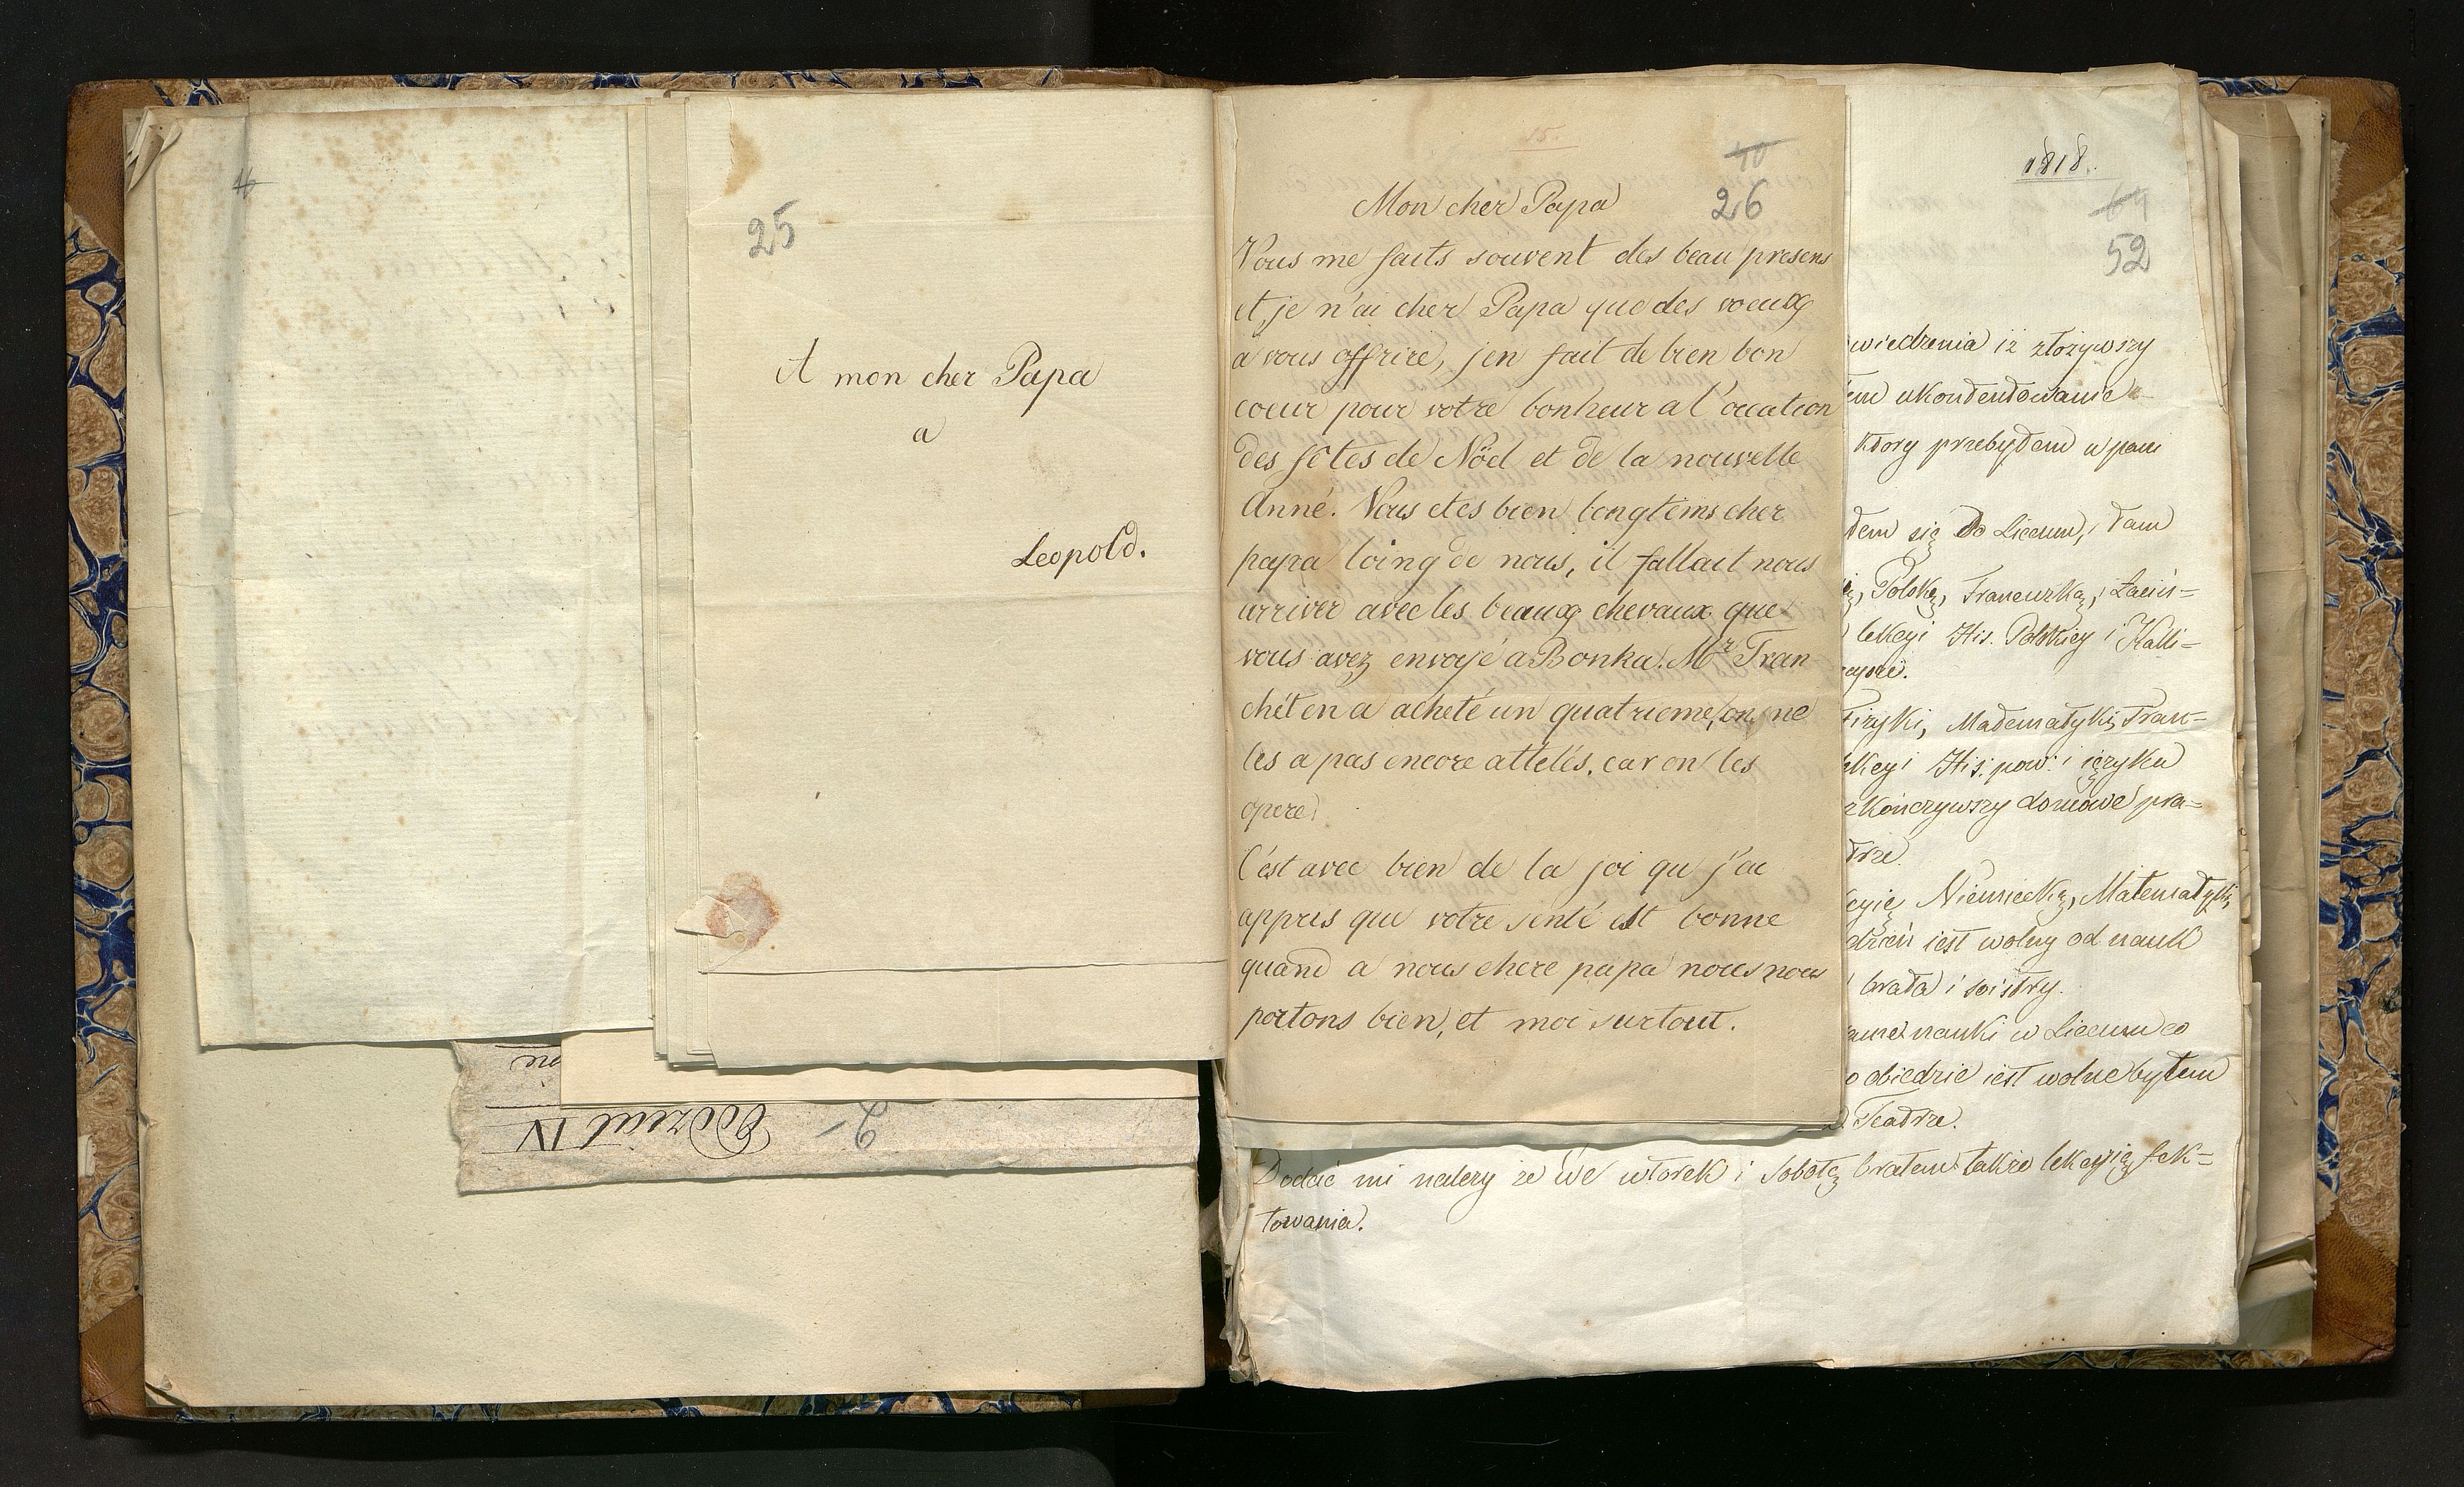 25
A mon cher Papa
a
Leopold.
Oddział IV
2-
15.
40
26
Mon cher Papa
Vous me faits souvent des beau presens
et, je n'ai cher Papa que des voeux
a vous offrire, jen fait de bien bon
coeur pour votre bonheur a l'ocation
des fêtes de Nöel et de la nouvelle
Anné. Vous etes bien longtems cher
papa loing de nous, il fallait nous
arriver avec les beaux chevaux que
vous avez envoyé a Bonka. Mr Fran
chét en a acheté un quatrieme, on ne
les a pas encore attelés, car on les
opere.
C'est avec bien de la joi qu j'ai
appris que votre senté est bonne
quand a nous chere papa nous nous
portons bien, et moi surtout.
1818.
64
52
wiedzenia iż złożywszy
ukontentowanie
ktory przebyłem w pani
łem się do Liceum, tam
Polską, Francuzką, Łaciń=
lekcyi His. Polskiey i Kalli=
Fizyki, Matematyki, Fran=
lekcyi His: pow: i ięzyka
zkończywszy domowe pra=
trze.
cyię Niemiecką, Matematyki,
dzień iest wolny od nauk
brata i siostry.
same nauki w Liceum co
o obiedzie iest wolne byłem
Teatrze.
Dodać mi należy że we wtorek i Sobotę brałem także lekcyię fek=
towania.